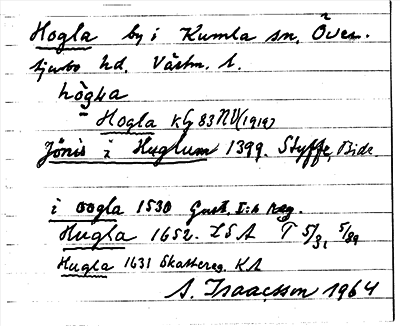 Hogla by i Kumla sn, Över-
tjurbo hd. Västm. l.
hògla
Hogla KG 83 NV (1919)
Jönis i Huglum 1399. Styffe, Bidr
i oogla 1530 Gust. I:s Reg.
Hugla 1652. LSA T 5/3, 5/89
Hugla 1631 Skattereg. KA
A. Isaacsson 1964